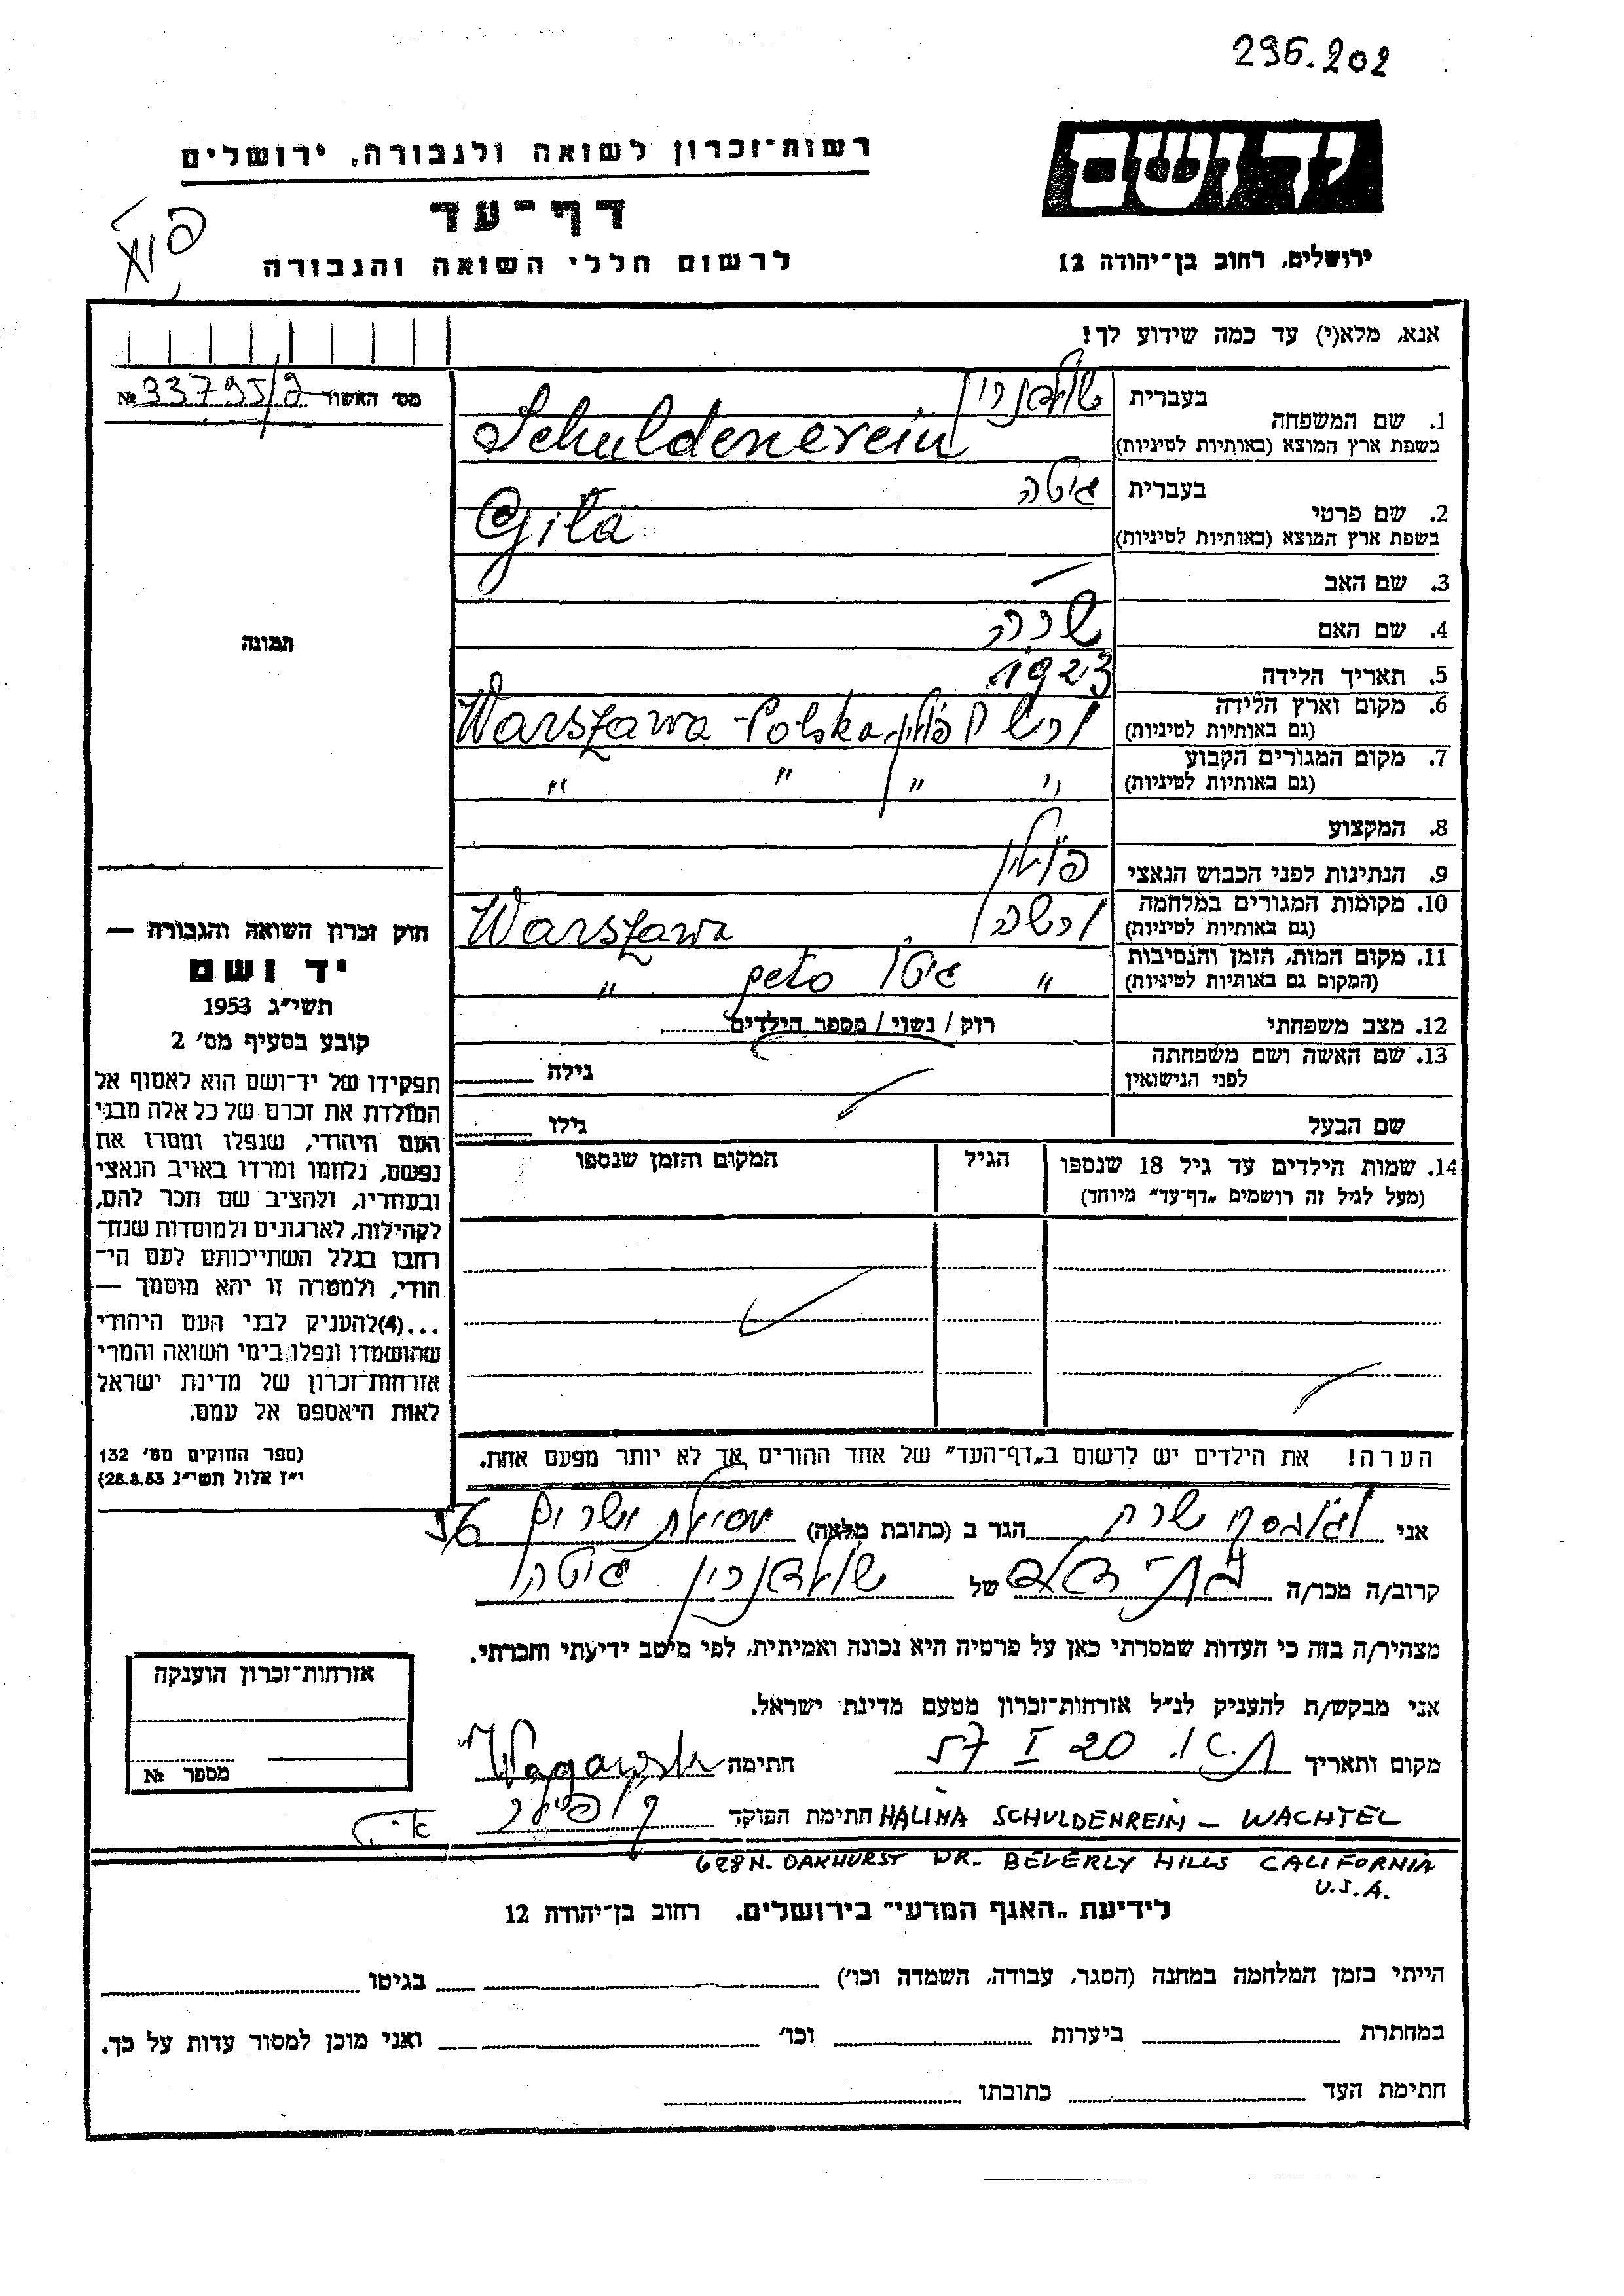 296.202
יד ושם
רשות־זכרון לשואה ולגבורה, ירושלים
דף־עד
לרשום חללי השואה והגבורה
ירושלים, רחוב בן־יהודה 12
אנא, מלא(י) עד כמה שידוע לך!
מס׳ האשור № 33795/2
1. שם המשפחה
בעברית שולדנריין
בשפת ארץ המוצא (באותיות לטיניות) Schuldenerein
2. שם פרטי
בעברית גיטה
בשפת ארץ המוצא (באותיות לטיניות) Gita
3. שם האב
4. שם האם שרה
5. תאריך הלידה 1923
6. מקום וארץ הלידה
(גם באותיות לטיניות) פולין Warszawa - Polska
7. מקום המגורים הקבוע
(גם באותיות לטיניות) " " " "
8. המקצוע
9. הנתינות לפני הכבוש הנאצי פולין
10. מקומות המגורים במלחמה
(גם באותיות לטיניות) ורשה Warszawa
11. מקום המות, הזמן והנסיבות
(המקום גם באותיות לטיניות) " גיטו geto "
12. מצב משפחתי רוק / נשוי / מספר הילדים
13. שם האשה ושם משפחתה
לפני הנישואין גילה
שם הבעל גילו
14. שמות הילדים עד גיל 18 שנספו
(מעל לגיל זה רושמים „דף־עד״ מיוחד)
הגיל
המקום והזמן שנספו
תמונה
חוק זכרון השואה והגבורה —
יד ושם
תשי״ג 1953
קובע בסעיף מס׳ 2
תפקידו של יד־ושם הוא לאסוף אל
המולדת את זכרם של כל אלה מבני
העם היהודי, שנפלו ומסרו את
נפשם, נלחמו ומרדו באויב הנאצי
ובעוזריו, ולהציב שם וזכר להם,
לקהילות, לארגונים ולמוסדות שנח־
רבו בגלל השתייכותם לעם הי־
הודי, ולמטרה זו יהא מוסמך —
...(4)להעניק לבני העם היהודי
שהושמדו ונפלו בימי השואה והמרי
אזרחות־זכרון של מדינת ישראל
לאות היאספם אל עמם.
(ספר החוקים מס׳ 132
י״ז אלול תשי״ג 28.8.53)
הערה! את הילדים יש לרשום ב„דף־העד״ של אחד ההורים אך לא יותר מפעם אחת.
אני שרה הגר ב (כתובת מלאה) מסילת ישרים
קרוב/ה מכר/ה של שולדנריין גיטה
מצהיר/ה בזה כי העדות שמסרתי כאן על פרטיה היא נכונה ואמיתית, לפי מיטב ידיעתי והכרתי.
אני מבקש/ת להעניק לנ״ל אזרחות־זכרון מטעם מדינת ישראל.
מקום ותאריך ת.א. 20 I 57 חתימה
חתימת הפוקד
HALINA SCHULDENREIN – WACHTEL
628 N. OAKHURST DR. BEVERLY HILLS CALIFORNIA
U.S.A.
אזרחות־זכרון הוענקה
מספר №
לידיעת „האגף המדעי״ בירושלים. רחוב בן־יהודה 12
הייתי בזמן המלחמה במחנה (הסגר, עבודה, השמדה וכו׳) בגיטו
במחתרת ביערות וכו׳ ואני מוכן למסור עדות על כך.
חתימת העד כתובתו